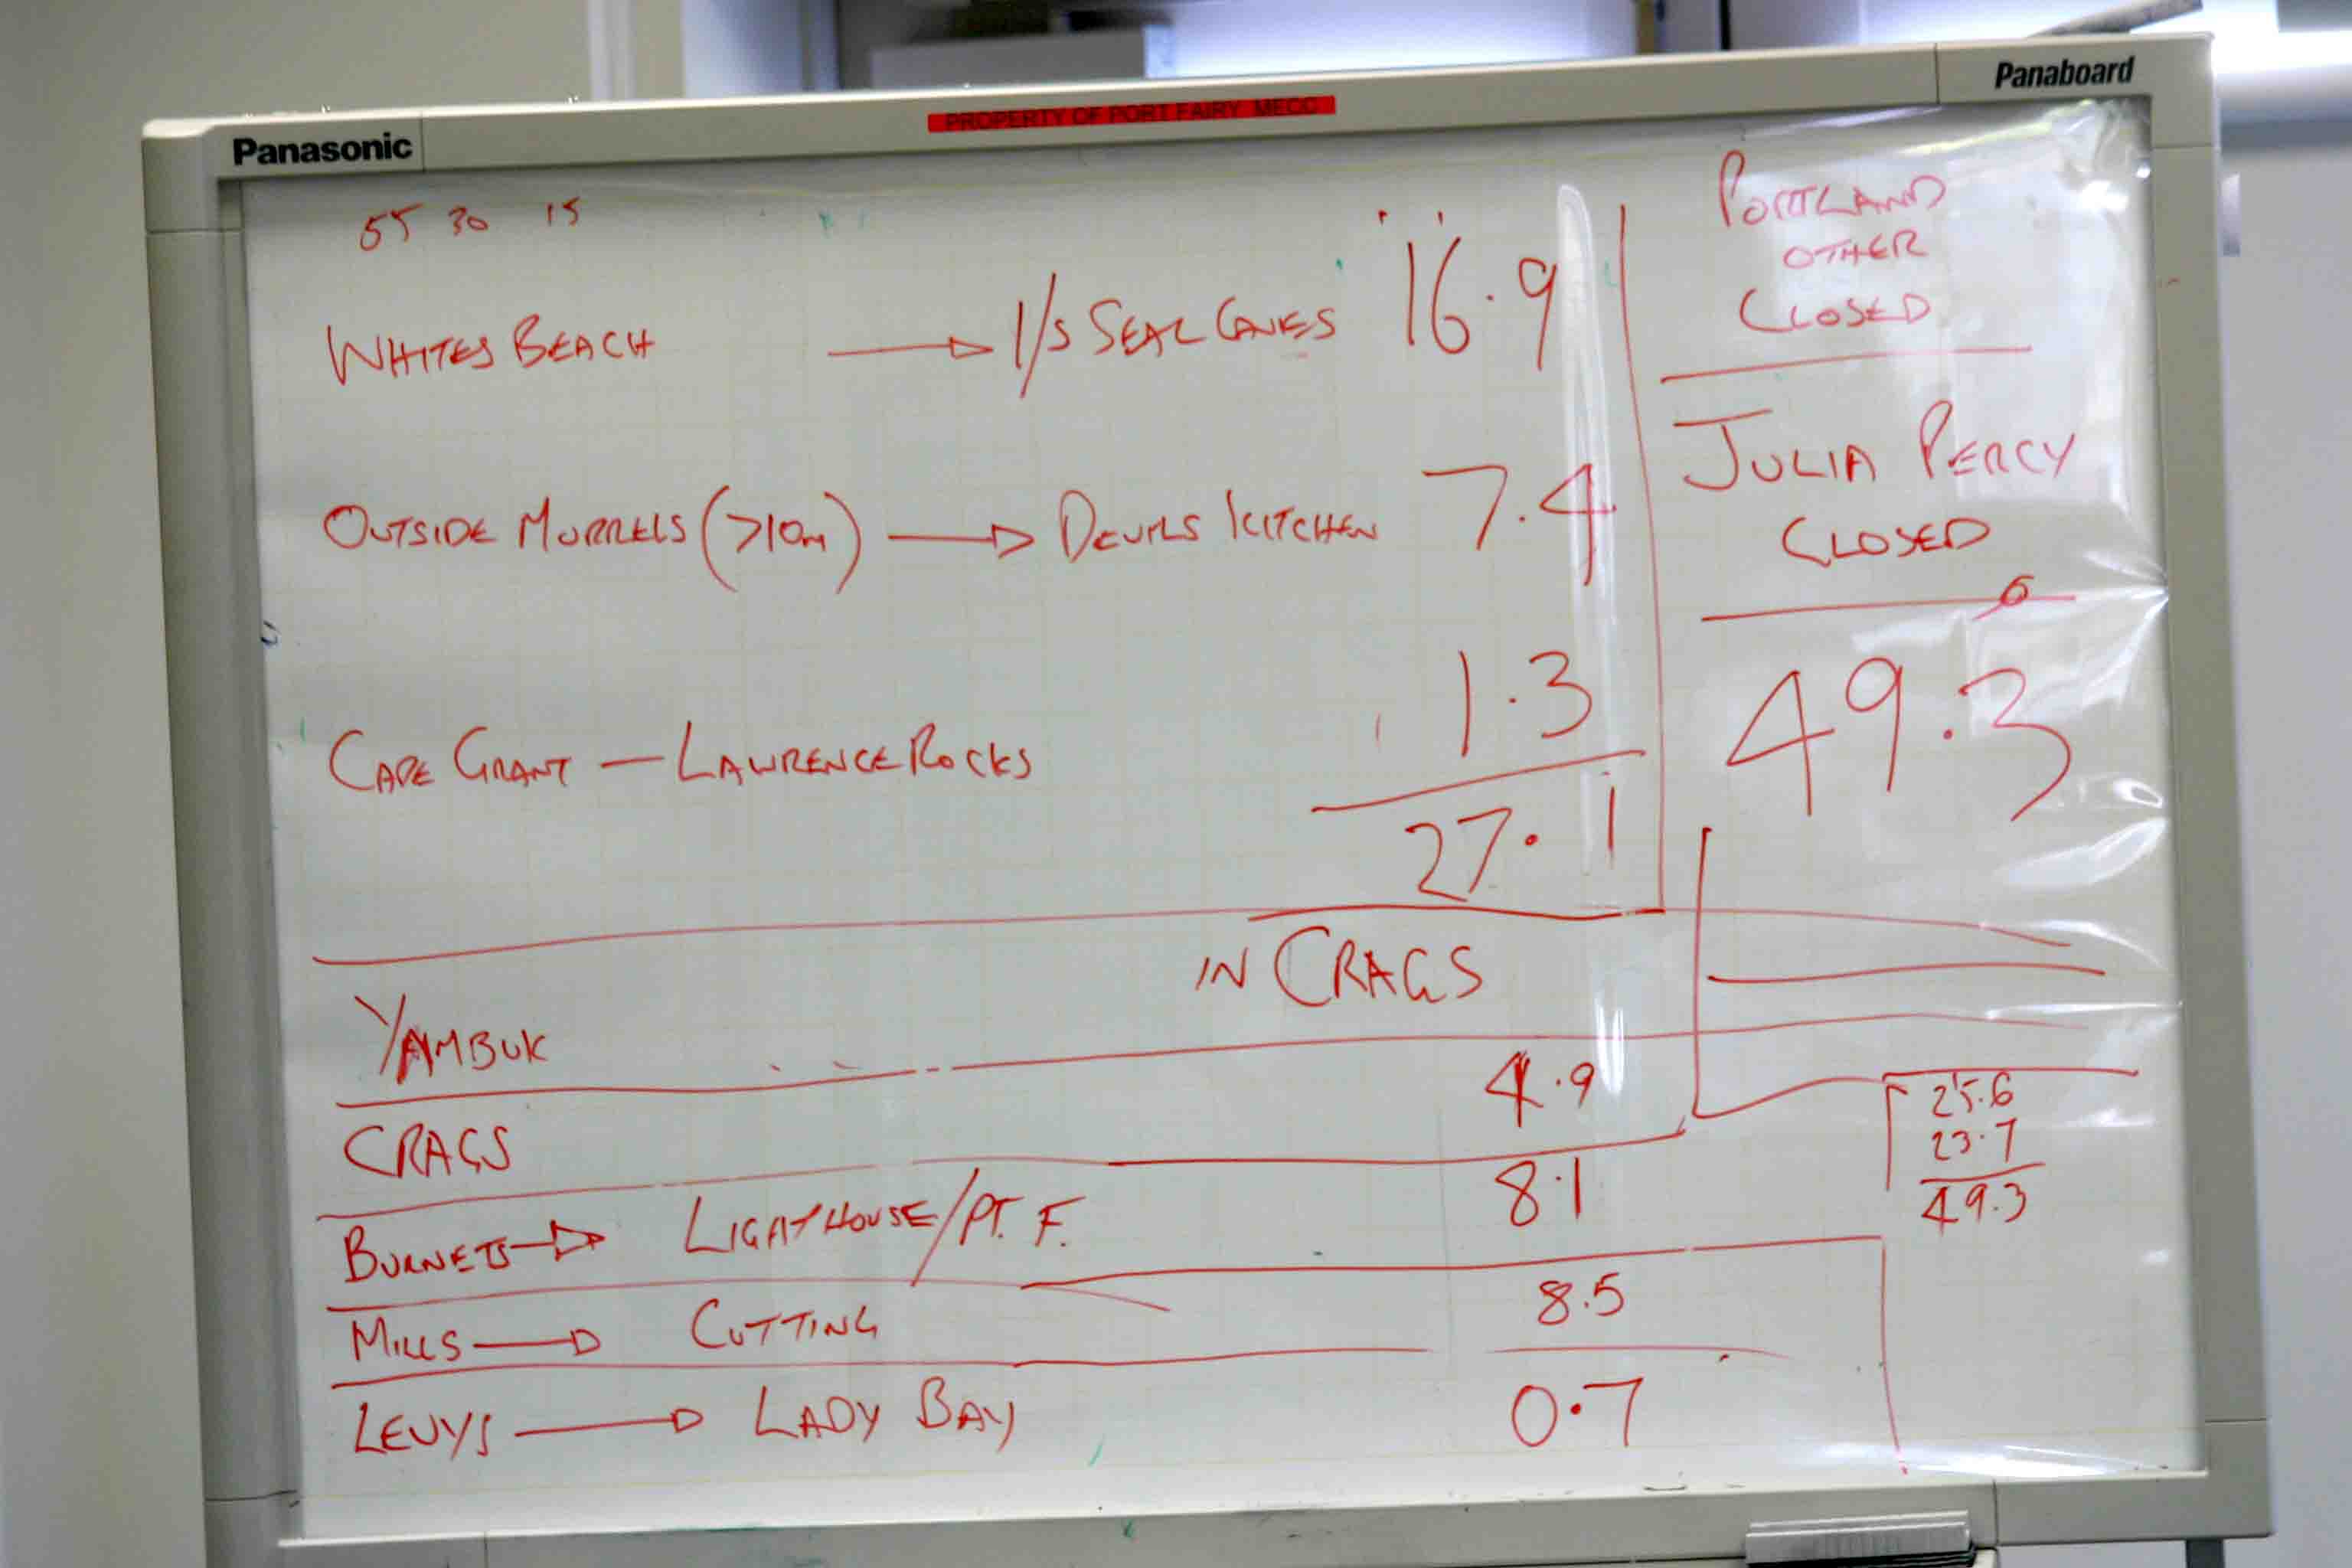 Panasonic
PROPERTY OF PORT FAIRY MECC
Panaboard
55 30 15
WHITES BEACH → I/S SEAL CAVES 16.9
OUTSIDE MURRELS (>10m) → DEVILS KITCHEN 7.4
1.3
CAPE GRANT — LAWRENCE ROCKS
27.1
PORTLAND
OTHER
CLOSED
JULIA PERCY
CLOSED
49.3
IN CRAGS
YAMBUK
CRAGS 4.9
BURNETS → LIGHTHOUSE/PT. F. 8.1
MILLS → CUTTING 8.5
LEVYS → LADY BAY 0.7
25.6
23.7
49.3